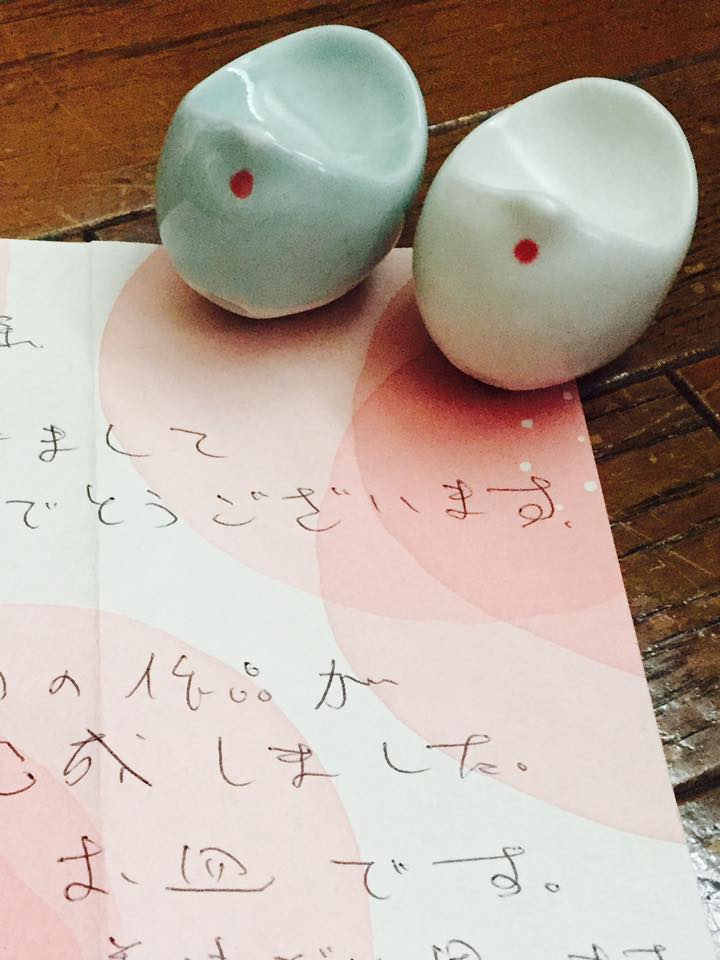 まして
でとうございます。
の作品が
成しました。
お皿です。